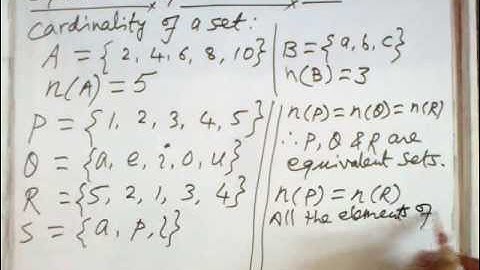 Cardinality of a set:
A = {2, 4, 6, 8, 10}
n(A) = 5
B = {a, b, c}
n(B) = 3
P = {1, 2, 3, 4, 5}
Q = {a, e, i, o, u}
R = {5, 2, 1, 3, 4}
S = {a, p, l}
n(P) = n(Q) = n(R)
∴ P, Q & R are
equivalent sets.
n(P) = n(R)
All the elements of